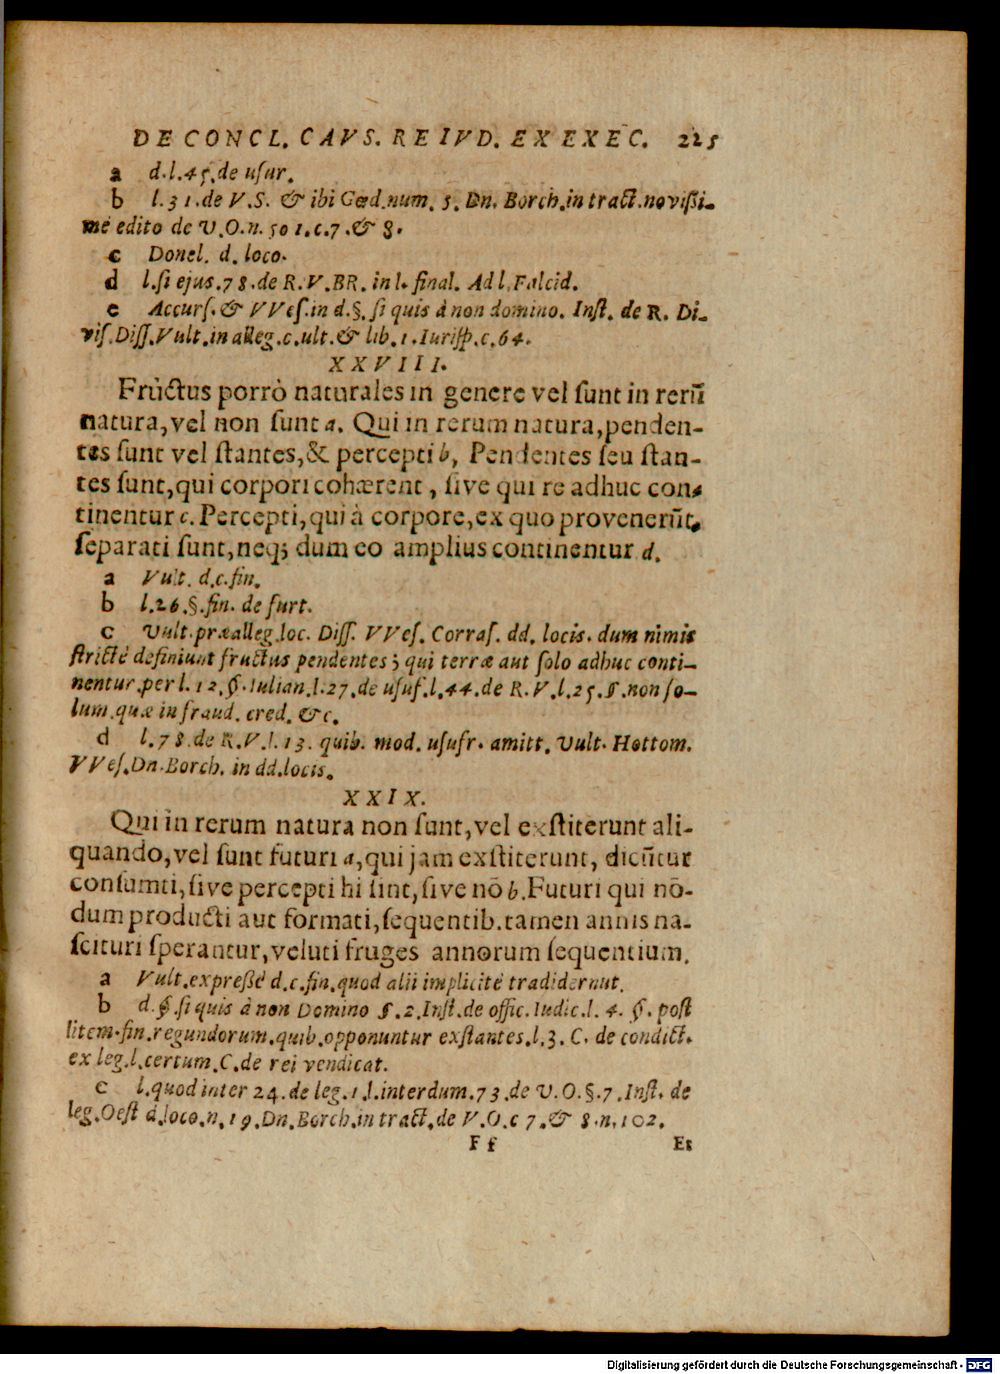 DE CONCL. CAVS. REIVD. EX EXEC. 225
a d.l.45.de usur.
b l.31.de V.S. & ibi Gœd.num. 5. Dn. Borch.in tract.novißi-
mé edito de V.O.n.501.c.7.& 8.
c Donel. d. loco.
d l.si ejus.78.de R.V.BR. in l. final. Ad l. Falcid.
e Accurs. & VVes.in d.§. si quis à non domino. Inst. de R. Di-
vis.Diss.Vult.in alleg.c.ult.& lib.1.Iurisp.c.64.
XXVIII.
Fructus porrò naturales in genere vel sunt in rerū
natura,vel non sunt a. Qui in rerum natura,penden-
tes sunt vel stantes,& percepti b, Pendentes seu stan-
tes sunt,qui corpori cohærent, sive qui re adhuc con-
tinentur c. Percepti,qui à corpore,ex quo provenerūt,
separati sunt,neq; dum eo amplius continentur d.
a Vult. d.c.fin.
b l.26.§.fin. de furt.
c Vult.præalleg.loc. Diss. VVes. Corras. dd. locis. dum nimis
stricté definiunt fructus pendentes; qui terræ aut solo adhuc conti-
nentur.per l.12.§.Iulian.l.27.de usuf.l.44.de R.V.l.25.§.non so-
lum.quæ in fraud. cred. &c.
d l.78.de R.V.l.13. quib. mod. usufr. amitt. Vult. Hottom.
VVes.Dn.Borch. in dd.locis.
XXIX.
Qui in rerum natura non sunt,vel exstiterunt ali-
quando,vel sunt futuri a,qui jam exstiterunt, dicūtur
consumti,sive percepti hi sint,sive nō b.Futuri qui nō-
dum producti aut formati,sequentib.tamen annis na-
scituri sperantur,veluti fruges annorum sequentium.
a Vult.expreßé d.c.fin.quod alii implicité tradidernut.
b d.§.si quis à non Domino §.2.Inst.de offic.Iudic.l.4.§.post
litem.fin.regundorum.quib.opponuntur exstantes.l.3. C. de condict.
ex leg.l.certum.C.de rei vendicat.
c l.quod inter 24.de leg.1.l.interdum.73.de V.O.§.7.Inst. de
leg.Oest d.loco.n.19.Dn.Borch.in tract.de V.O.c 7.& 8.n.102.
Ff Et
Digitalisierung gefördert durch die Deutsche Forschungsgemeinschaft - DFG